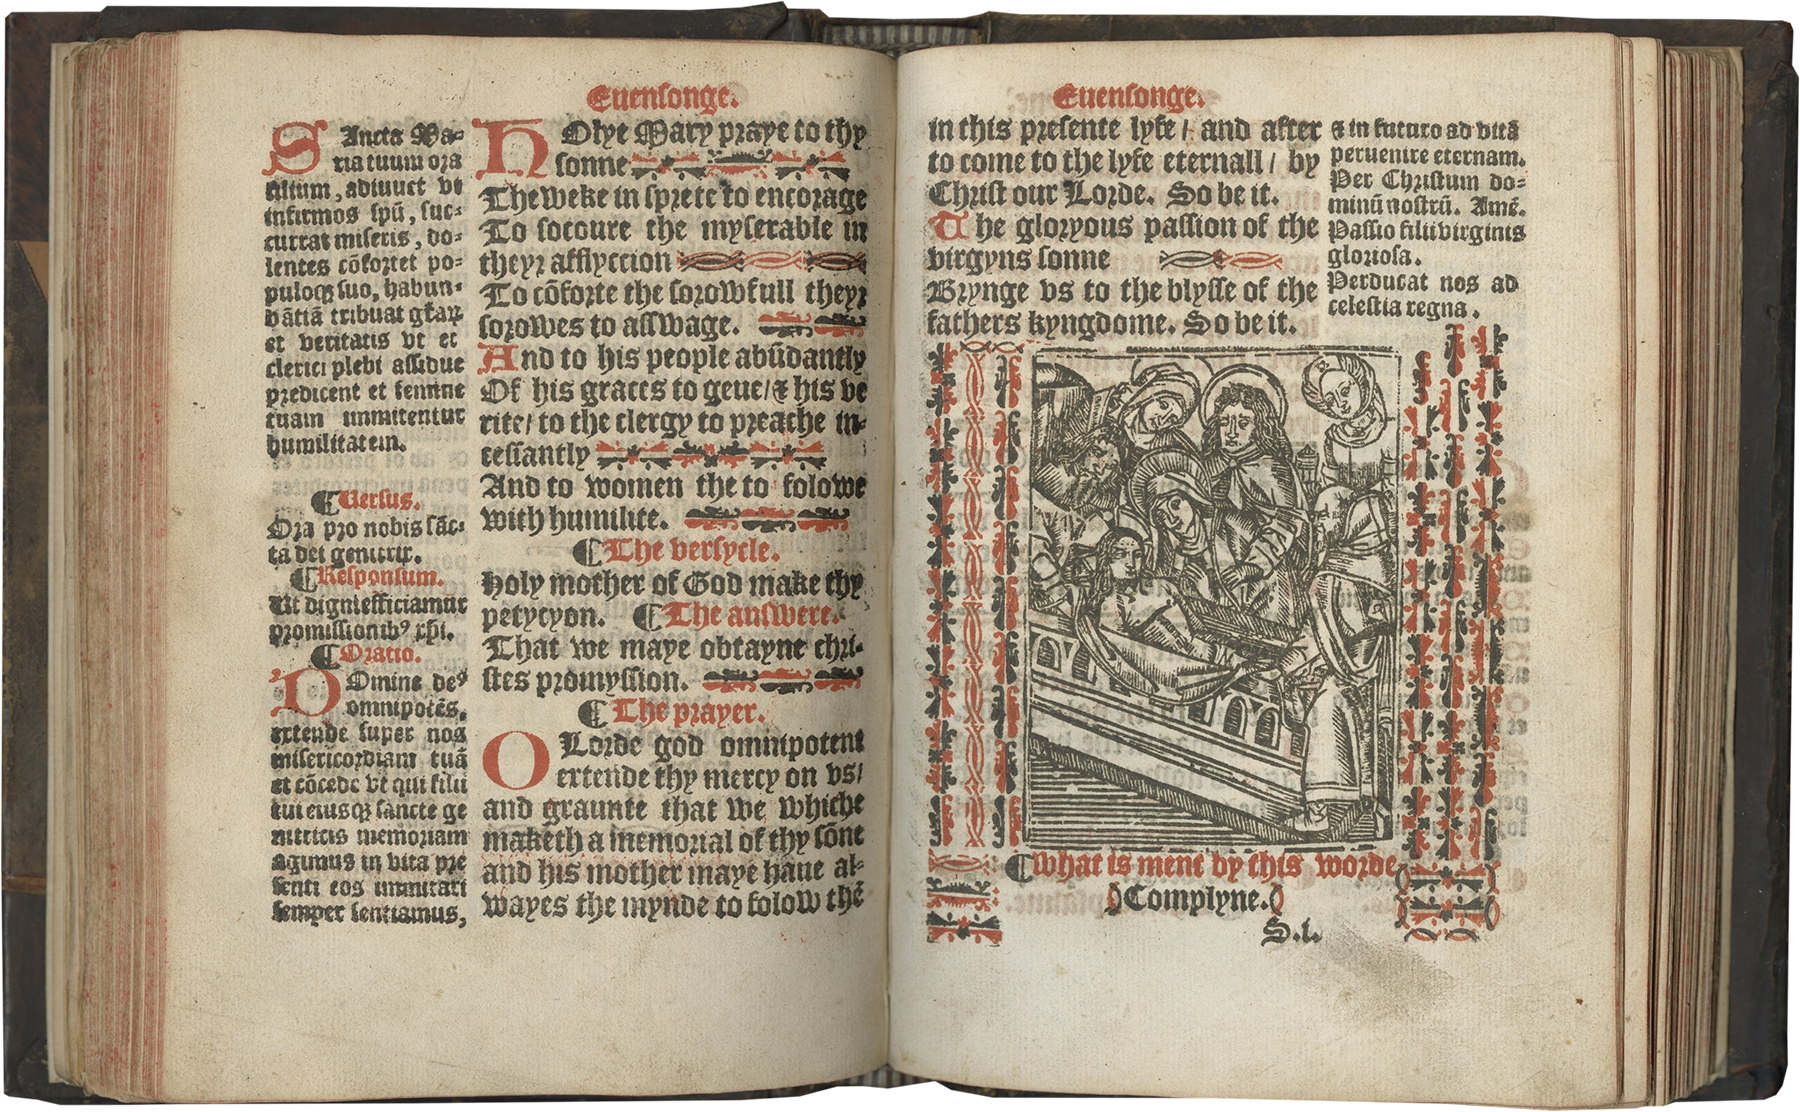 Euensonge.
SAncta Ma=
ria tuum ora
filium, adiuuet vt
infirmos spū, suc=
currat miseris, do=
lentes cōfortet po=
puloqꝫ suo, habun=
dātiā tribuat
et veritatis vt et
clerici plebi assidue
predicent et femine
tuam immitentur
humilitatem.
¶Versus.
Ora pro nobis sāc=
ta dei genitrix.
¶Responsum.
Ut digni efficiamur
promissionibꝰ xp̄i.
¶Oratio.
DOmine deꝰ
omnipotēs,
extende super nos
misericordiam tuā
et cōcede vt qui filii
tui eiusqꝫ sancte ge
nitricis memoriam
agimus in vita pre
senti eos immitari
semper sentiamus,
HOlye Mary praye to thy
sonne
The weke in sprete to encorage
To socoure the myserable in
theyr afflyccion
To cōforte the sorowfull theyr
sorowes to asswage.
And to his people abūdantly
Of his graces to geue/& his ve
rite/ to the clergy to preache in=
cessantly
And to women the to folowe
with humilite.
¶The versycle.
Holy mother of God make thy
petycyon. ¶The answere.
That we maye obtayne chri=
stes promyssion.
¶The prayer.
O Lorde god omnipotent
extende thy mercy on vs/
and graunte that we whiche
maketh a memorial of thy sōne
and his mother maye haue al=
wayes the mynde to folow thē
Euensonge.
in this presente lyfe/ and after
to come to the lyfe eternall/ by
Christ our Lorde. So be it.
The gloryous passion of the
virgyns sonne
Brynge vs to the blysse of the
fathers kyngdome. So be it.
& in futuro ad vitā
peruenire eternam.
Per Christum do=
minū nostrū. Amē.
Passio filii virginis
gloriosa.
Perducat nos ad
celestia regna.
¶What is ment by this worde
Complyne.
S.i.